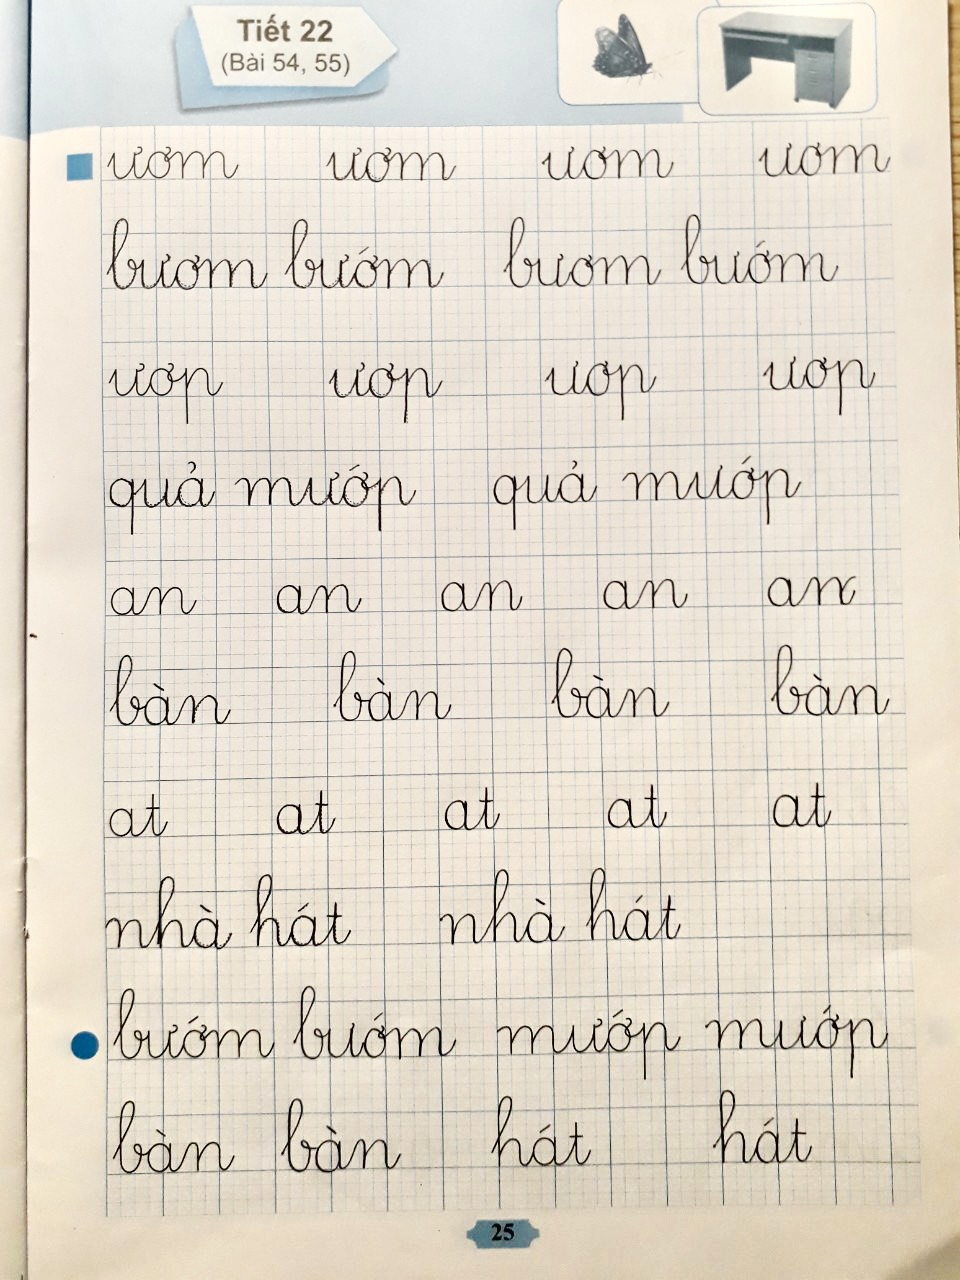 Tiết 22
(Bài 54, 55)
ươm ươm ươm ươm
bươm bướm bươm bướm
ươp ươp ươp ươp
quả mướp quả mướp
an an an an an
bàn bàn bàn bàn
at at at at at
nhà hát nhà hát
bướm bướm mướp mướp
bàn bàn hát hát
25